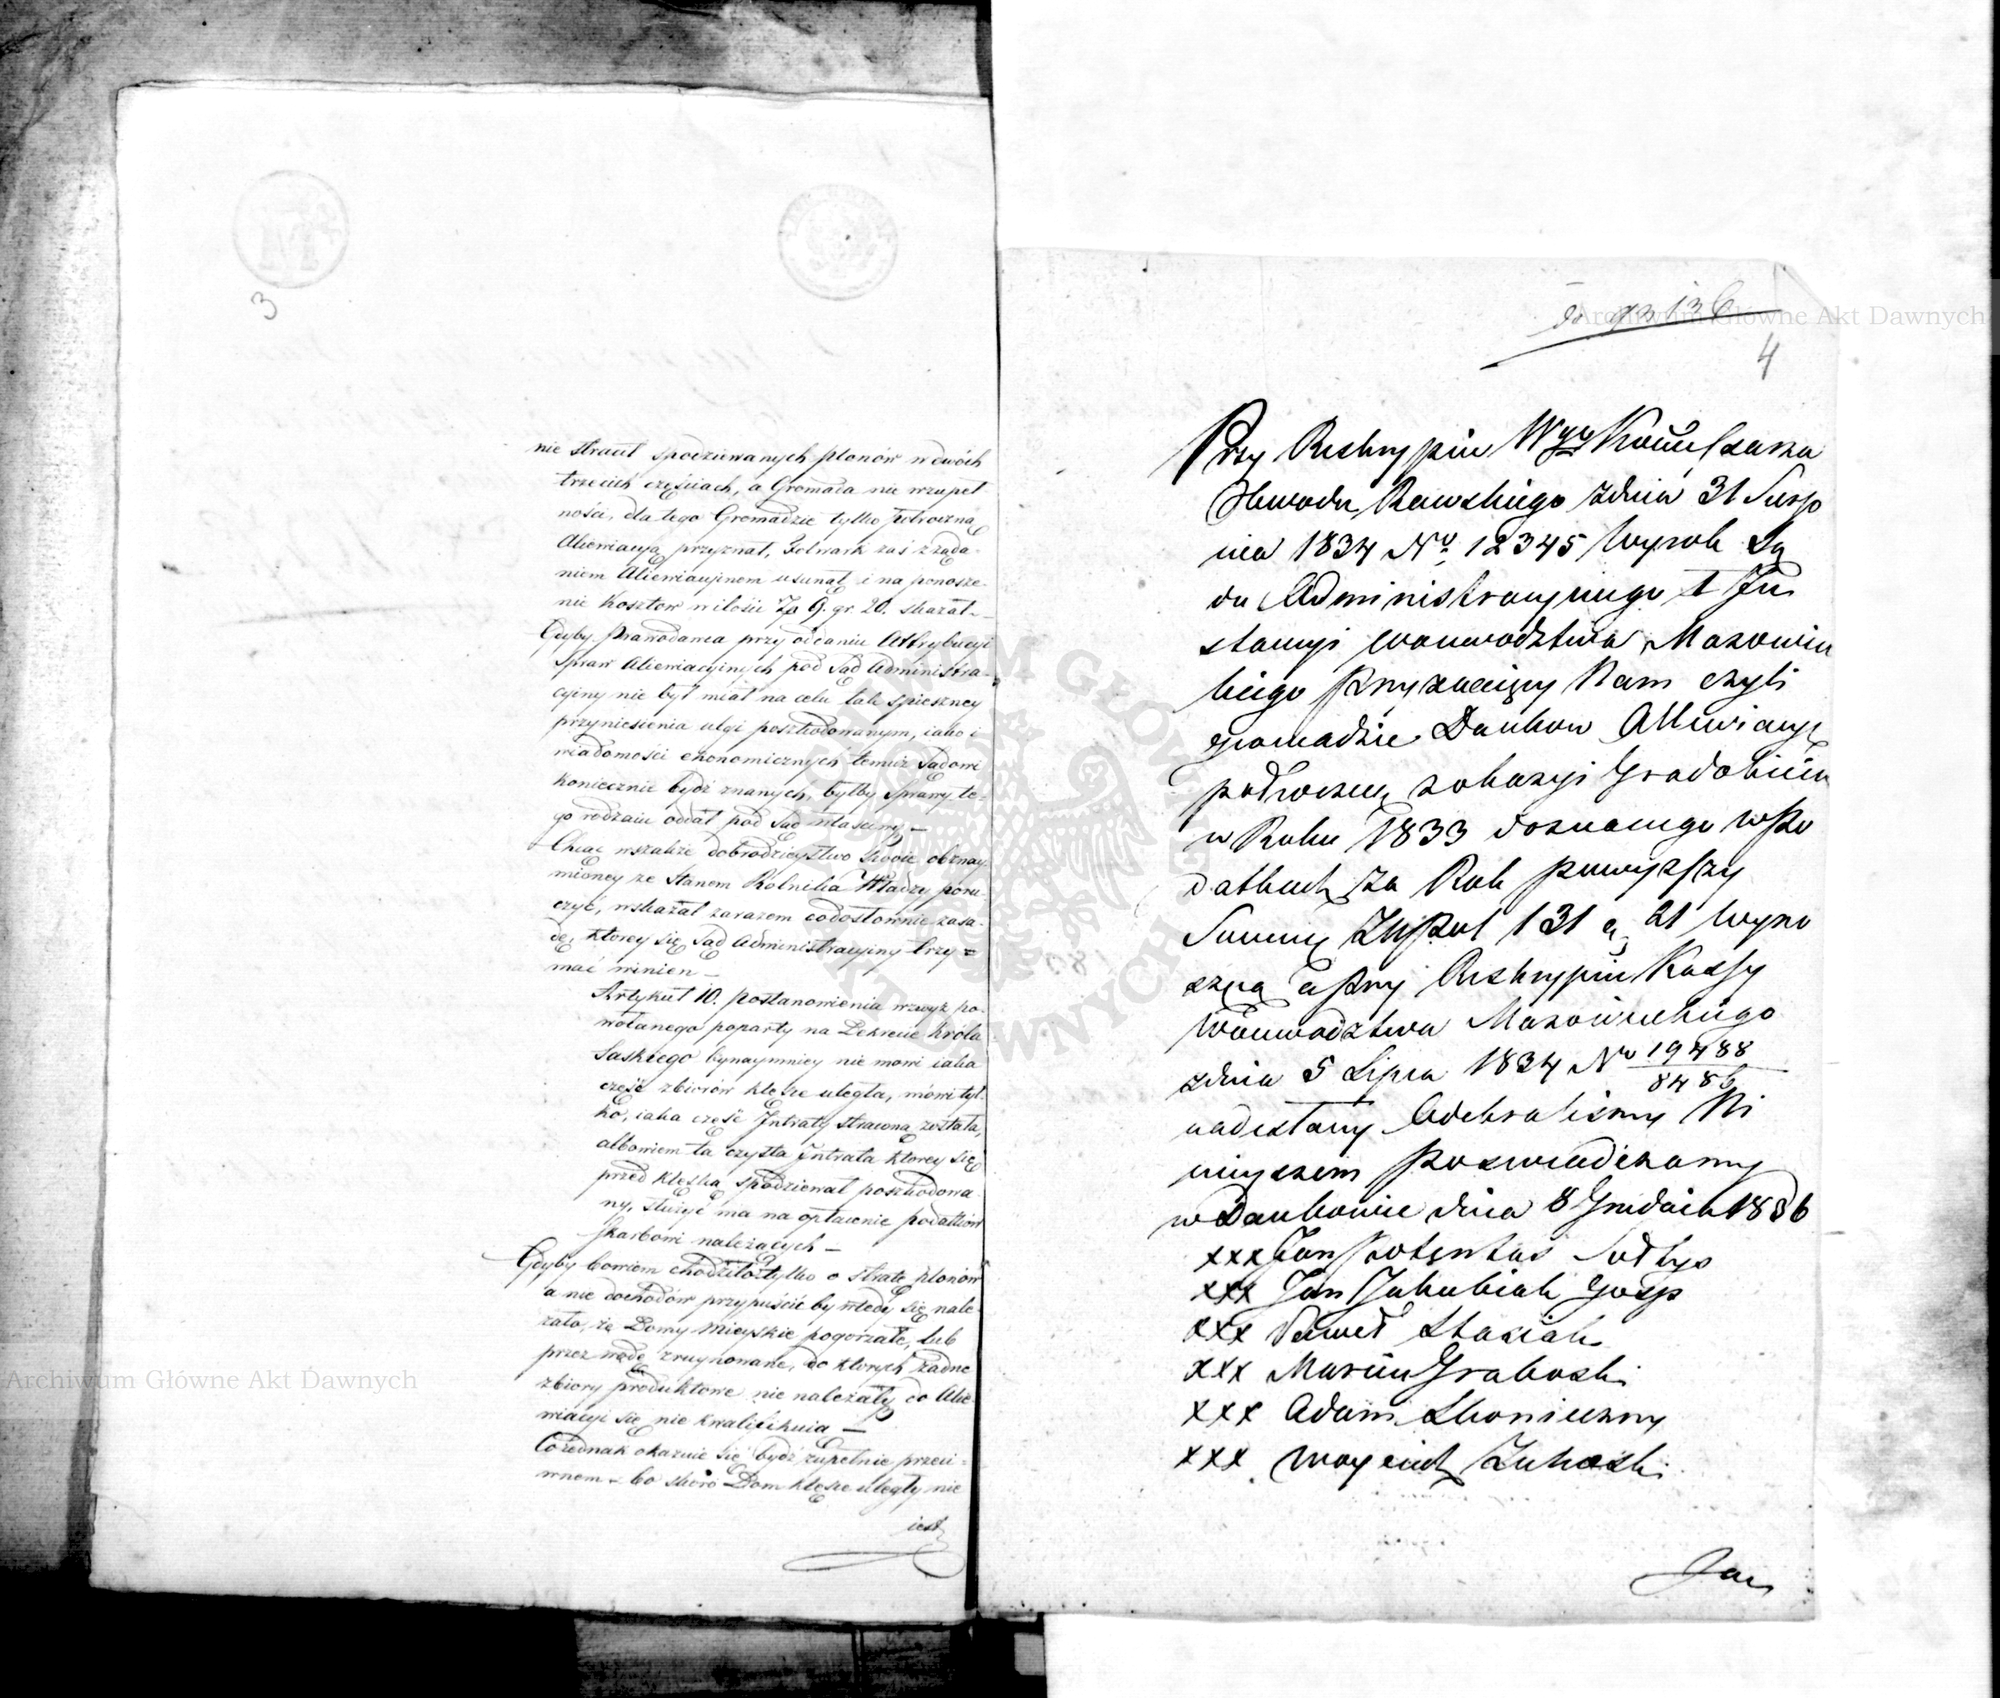 3
nie stracił spodziewanych plonów w dwóch
trzecich częściach, a Gromada nie wzupeł
ności, dla tego Gromadzie tylko półroczną
Aliewiacyą przyznał, Folwark zaś z żąda-
niem Aliewiacyinem usunął i na ponosze-
nie kosztów w ilości Zł 9. gr. 20. skazał -
Gdyby Prawodawca przy oddaniu Attrybucyi
Spraw Aliewiacyinych pod Sąd Administra-
cyiny nie był miał na celu tak spieszney
przyniesienia ulgi poszkodowanym, iako i
wiadomości ekonomicznych temuż Sądowi
koniecznie bydź znanych, byłby Sprawy te-
go rodzaiu oddał pod Sąd właściwy -
Chcąc wszakże dobrodzieystwo swoie obznay
mioney ze Stanem Rolnika Władzy poru-
czyć, wskazał zarazem co dosłownie zasa-
dę, którey się Sąd Administracyiny trzy=
mać winien -
Artykuł 10. postanowienia wzwyż po-
wołanego poparty na Dekrecie Króla
Saskiego bynaymniey nie mowi iaka
część zbiorów klęsce uległa, mówi tyl-
ko, iaka część Intraty straconą została,
albowiem ta czysta Intrata którey się
przed klęską spodziewał poszkodowa-
ny, służyć ma na opłacenie podatków
Skarbowi należących -
Gdyby bowiem chodziło tylko o stratę plonów
a nie dochodów przypuścić by wtedy się nale-
żało, że Domy Mieyskie pogorzałe, lub
przez wodę zruynowane, do których żadne
zbiory produktowe nie należały, do Alie-
wiacyi się nie kwalifikuią -
Co iednak okazuie się bydź zupełnie przeci-
wnem - bo skoro Dom klęsce uległy nie
iest
4
Przy Reskrypcie Wgo Kommissarza
Obwodu Rawskiego zdnia 31 Sierp
nia 1834 No 12345 Wyrok Są
du Administracyinego I Jn
stancyi Woiewodztwa Mazowie
ckiego Przyznaiący Nam czyli
gromadzie Dańkow Allewiacyę
półroczną zokazyi Gradobicia
w Roku 1833 doznanego wPo
datkach za Rok powyższy
Summę Złł Pol 131 g 21 Wyno
szącą a przy Reskrypcie Kassy
Woiewodztwa Mazowieckiego
zdnia 5 Lipca 1834 No 19488/8486
nadesłany Odebraliśmy Ni
nieyszem Poswiadczamy
w Dańkowie dnia 8 Grudnia 1836
xxx Jan Sołtys
xxx Jan Jakubiak Gosp
xxx Paweł Stasiak
xxx Marcin Graboski
xxx Adam Słonieczny
xxx Woyciech Żukoski
Jan
Archiwum Główne Akt Dawnych
Archiwum Główne Akt Dawnych